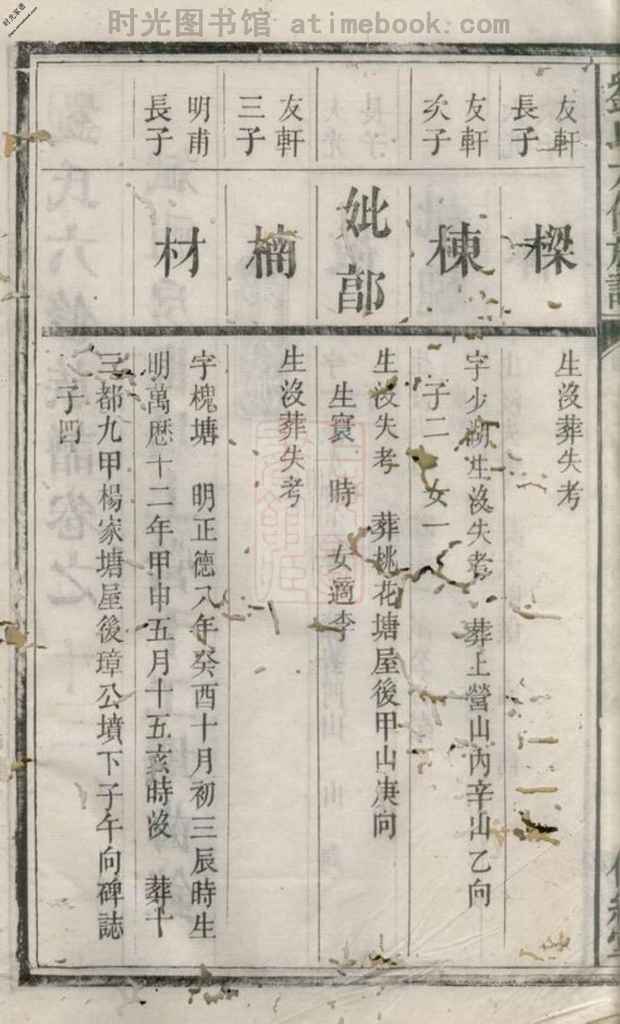 时光图书馆 atimebook.com
友軒
長子
樑
生沒葬失考
友軒
次子
棟
字少湖生沒失考 葬上營山內辛山乙向
子二 女一
妣鄗
生沒失考 葬桃花塘屋後甲山庚向
生寰 時 女適李
友軒
三子
楠
生沒葬失考
明甫
長子
材
字槐塘 明正德八年癸酉十月初三辰時生
明萬歷十二年甲申五月十五亥時沒 葬十
三都九甲楊家塘屋後璋公墳下子午向碑誌
子四